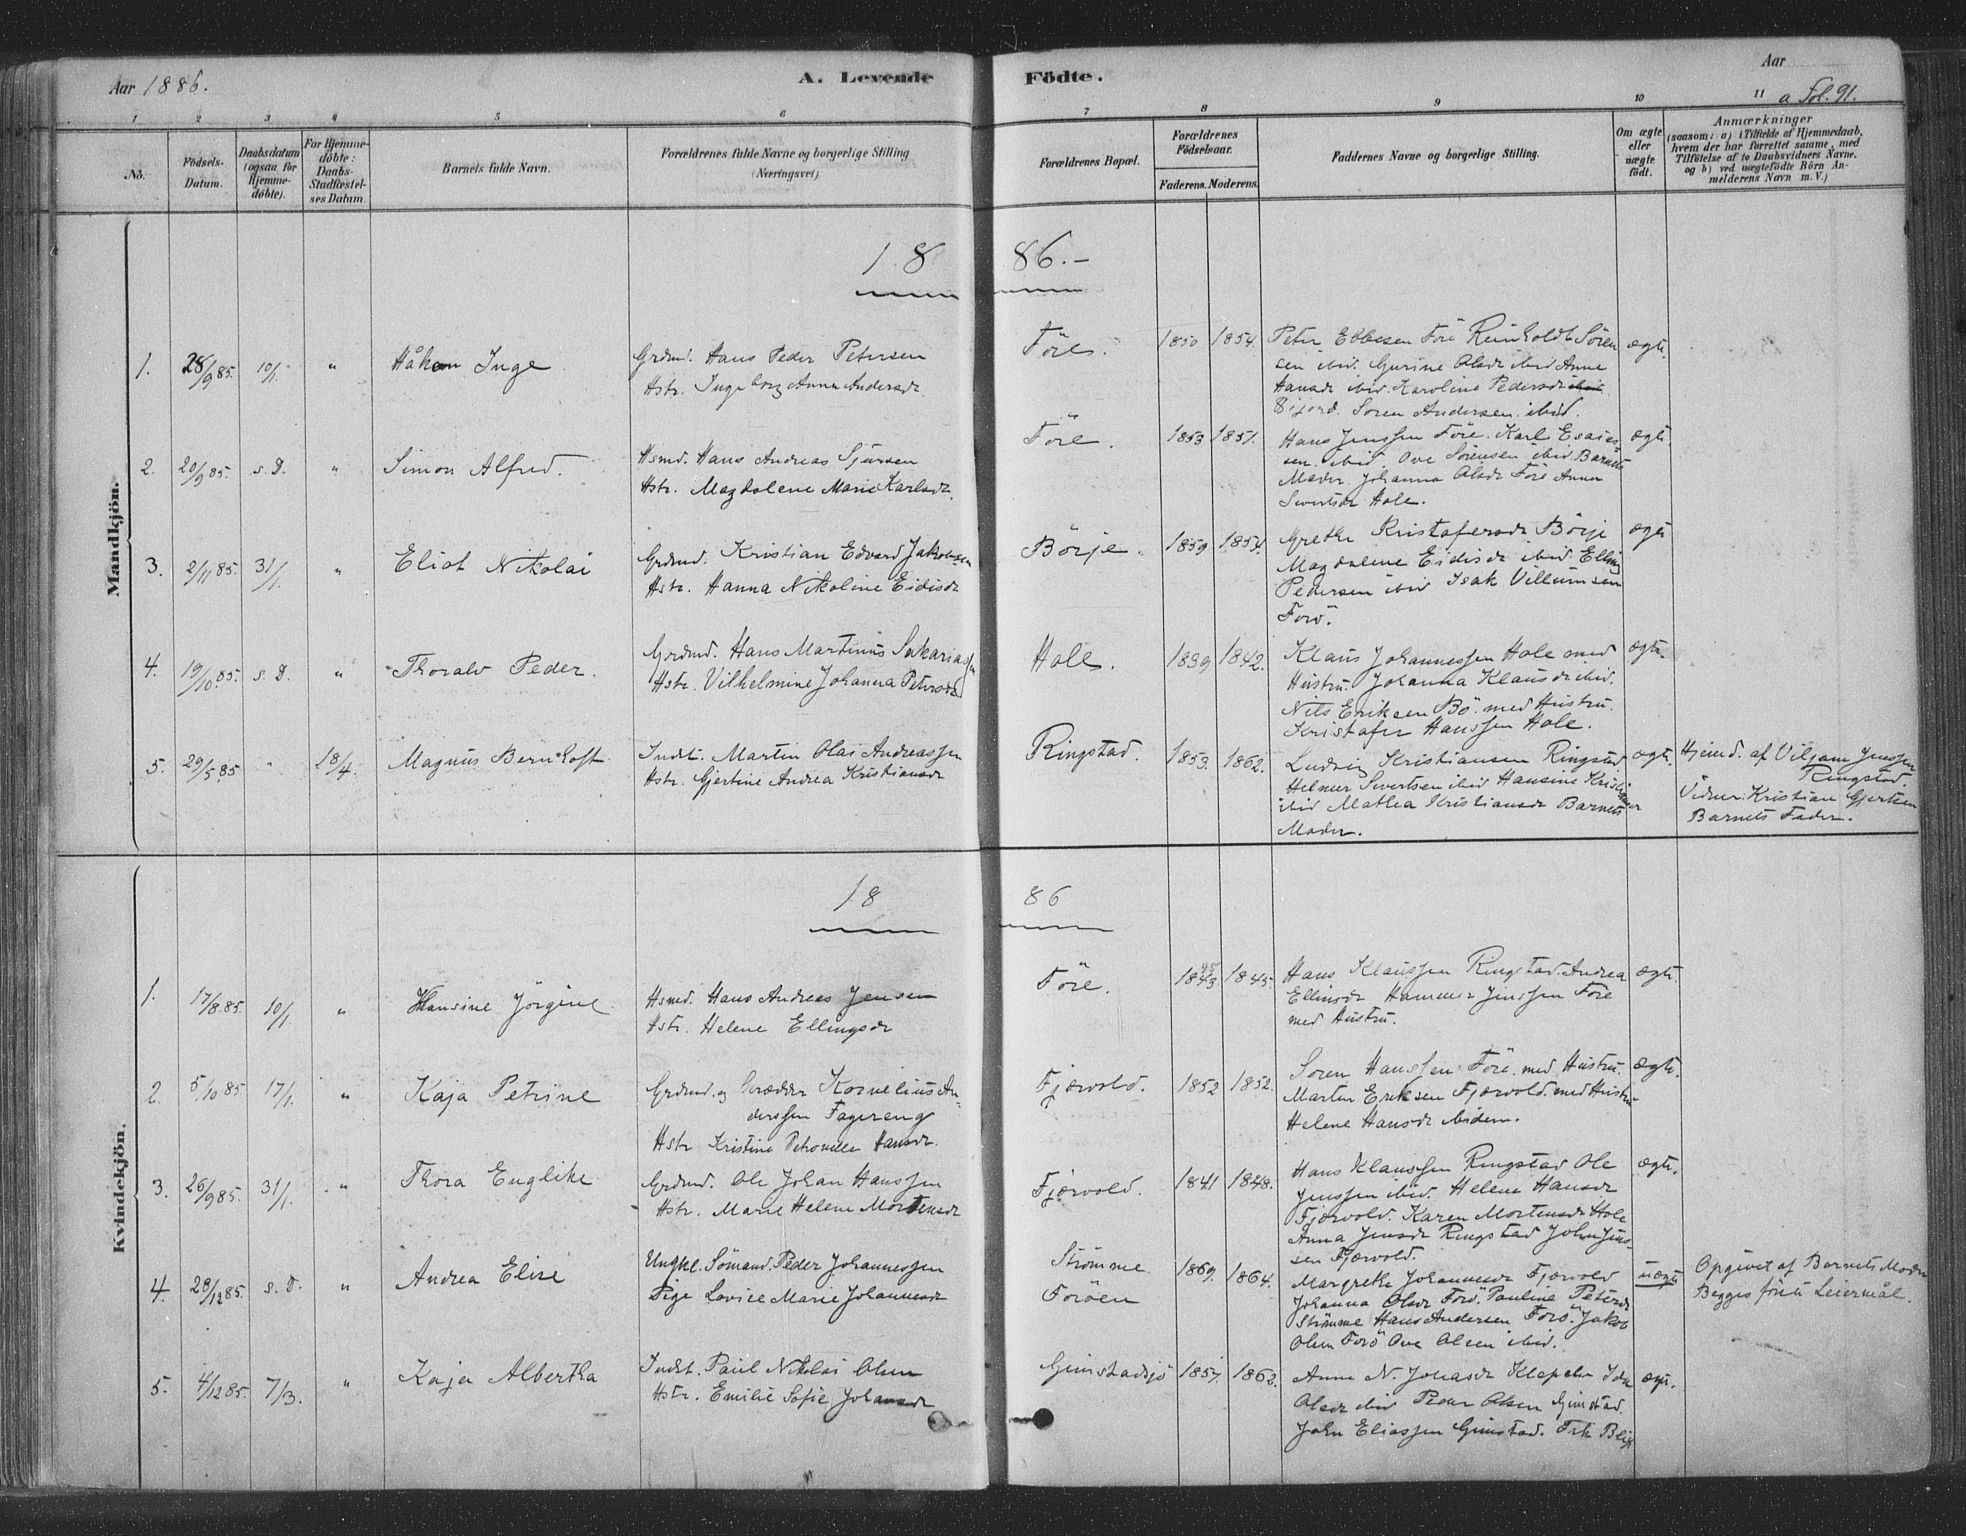 Aar 1886.
A. Levende Födte.
Aar
a Fol. 91.
1 2 3 4 5 6 7 8 9 10 11
No.
Födsels-Datum.
Daabsdatum (ogsaa for Hjemmedöbte).
For Hjemmedöbte: Daabs-Stadfæstelses Datum
Barnets fulde Navn.
Forældrenes fulde Navne og borgerlige Stilling (Næringsvei)
Forældrenes Bopæl.
Forældrenes Födselsaar.
Faderens. Moderens.
Faddernes Navne og borgerlige Stilling.
Om ægte eller uægte födt.
Anmærkninger
(saasom: a) i Tilfælde af Hjemmedaab, hvem der har forrettet samme, med Tilföielse af to Daabsvidners Navne, og b) ved uægtefödte Börn Anmelderens Navn m. V.)
Mandkjön.
1886.-
1. 28/9 85. 10/1. " Håkon Inge
Grdmd. Hans Peder Petersen
Hstr. Ingeborg Anna Andersdr
Före. 1850 1854.
Peter Ebbesen Före Reinholdt Sören
sen ibid. Gurine Olsdr ibid Anne
Hansdr ibid. Karoline Pedersdr
Soren Andersen ibid.
ægte.
2. 20/9 85. s. D. " Simon Alfred.
Hsmd. Hans Andreas Sjursen
Hstr. Magdalene Marie Karlsdr.
Före. 1853 1851.
Hans Jenssen Före. Karl Esaias
sen ibid. Ove Sörensen ibid. Barnets
Moder. Johanna Olsdr Före Anna
Sivertsdr Hole.
ægte.
3. 2/11 85. 31/1. " Eliot Nikolai
Grdmd. Kristian Edvard Jakobsen
Hstr. Hanna Nikoline Eidisdr
Börje. 1859 1854.
Grethe Kristofersdr Börje
Magdalene Eidisdr ibid Elling
Pedersen ibid Isak Villumsen
Forö.
ægte
4. 19/10 85. s. D. " Thoralv Peder.
Grdmd. Hans Martinus Sakariassen
Hstr. Vilhelmine Johanna Petersdr
Hole. 1839 1842.
Klaus Johannessen Hole med
Hustru. Johanna Klausdr ibid.
Nils Eriksen Bö. med Hustru.
Kristofer Hanssen Hole.
ægte.
5. 29/5 85 " 18/4. Magnus Bernhoft.
Indt. Martin Olai Andreassen
Hstr. Gjertine Andrea Kristiansdr
Ringstad. 1853. 1862.
Ludvig Kristiansen Ringstad
Helmer Sivertsen ibid Hansine
ibid Mathea Kristiansdr Barnets
Moder.
ægte.
Hjemd. af Viljam Jenssen
Ringstad.
Vidner: Kristian Gjertsen
Barnets Fader.
Kvindekjön.
1886
1. 17/8 85. 10/1. " Hansine Jörgine
Hsmd. Hans Andreas Jensen
Hstr. Helene Ellingsdr
Före. 1843 45 1845.
Hans Klaussen Ringstad. Andrea
Ellinsdr Hammer Jenssen Före
med Hustru.
ægte.
2. 5/10 85. 17/1. " Kaja Petrine
Grdmd. og Skrædder Kornelius An-
derssen Fagereng
Hstr Kristine Petronelle Hansdr.
Fjærvold. 1852 1852.
Soren Hanssen Före. med Hustru.
Martin Eriksen Fjærvold. med Hustru
Helene Hansdr ibidem.
ægte.
3. 26/9 85. 31/1. " Thora Englike
Grdmd. Ole Johan Hanssen
Hstr. Marie Helene Mortensdr
Fjærvold. 1841 1848.
Hans Klaussen Ringstad Ole
Jenssen ibid. Helene Hansdr
Fjærvold. Karen Mortensdr Hole
Anna Jensdr Ringstad John Jens-
sen Fjærvold.
ægte.
4. 28/12 85. s. D. " Andrea Elise
Unghl. Sömand. Peder Johannessen
Pige Lovise Marie Johannesdr
Strömme
Foröen
1869. 1864.
Margrethe Johannesdr Fjærvold
Johanna Olsdr Forö. Pauline Petersdr
Strömme Hans Andersen Forö. Jakob
Olsen Forö Ove Olsen ibid.
uægte
Opgivet af Barnets Moder
Begges förste Leiermål.
5. 4/12 85. 7/3. " Kaja Albertha
Indt. Paul Nikolai Olsen
Hstr. Emilie Sofie Johansdr
Gimstadsjö 1857. 1862.
Anne N. Johasdr Klapela Ida
Olsdr ibid Peder Olsen Gimstad.
John Eliassen Gimstad.
ægte.